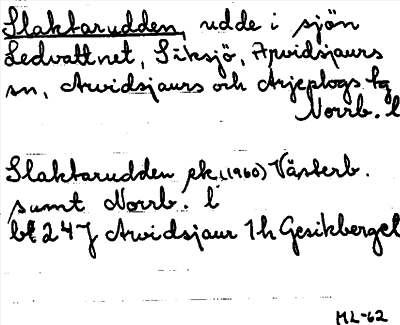 Slaktarudden, udde i sjön
Ledvattnet, Siksjö, Arvidsjaurs
sn, Arvidsjaurs och Arjeplogs tg
Norrb. l
Slaktarudden ek. (1960) Västerb.
samt Norrb. l
bl 24 J Arvidsjaur 1h Gesikberget
ML-62